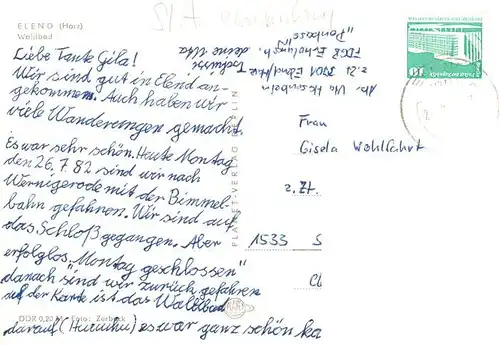 ELEND (Harz)
Waldbad
Liebe Tante Gila!
Wir sind gut in Elend an-
gekommen. Auch haben wir
viele Wanderungen gemacht.
Es war sehr schön. Heute Montag
den 26.7.82 sind wir nach
Wernigerode mit der Bimmel-
bahn gefahren. Wir sind auf
das Schloß gegangen. Aber
erfolglos „Montag geschlossen"
danach sind wir zurück gefahren
auf der Karte ist das Waldbad
darauf (Huruuhu) es war ganz schön ka
DDR 0,20 M Foto: Zerback
PLANET-VERLAG BERLIN
Tschüss deine Uta
z.Zt. 3701 Elend/Harz
FDGB Erholungsh.
Frau
Gisela Wohlfahrt
z.Zt.
1533 S